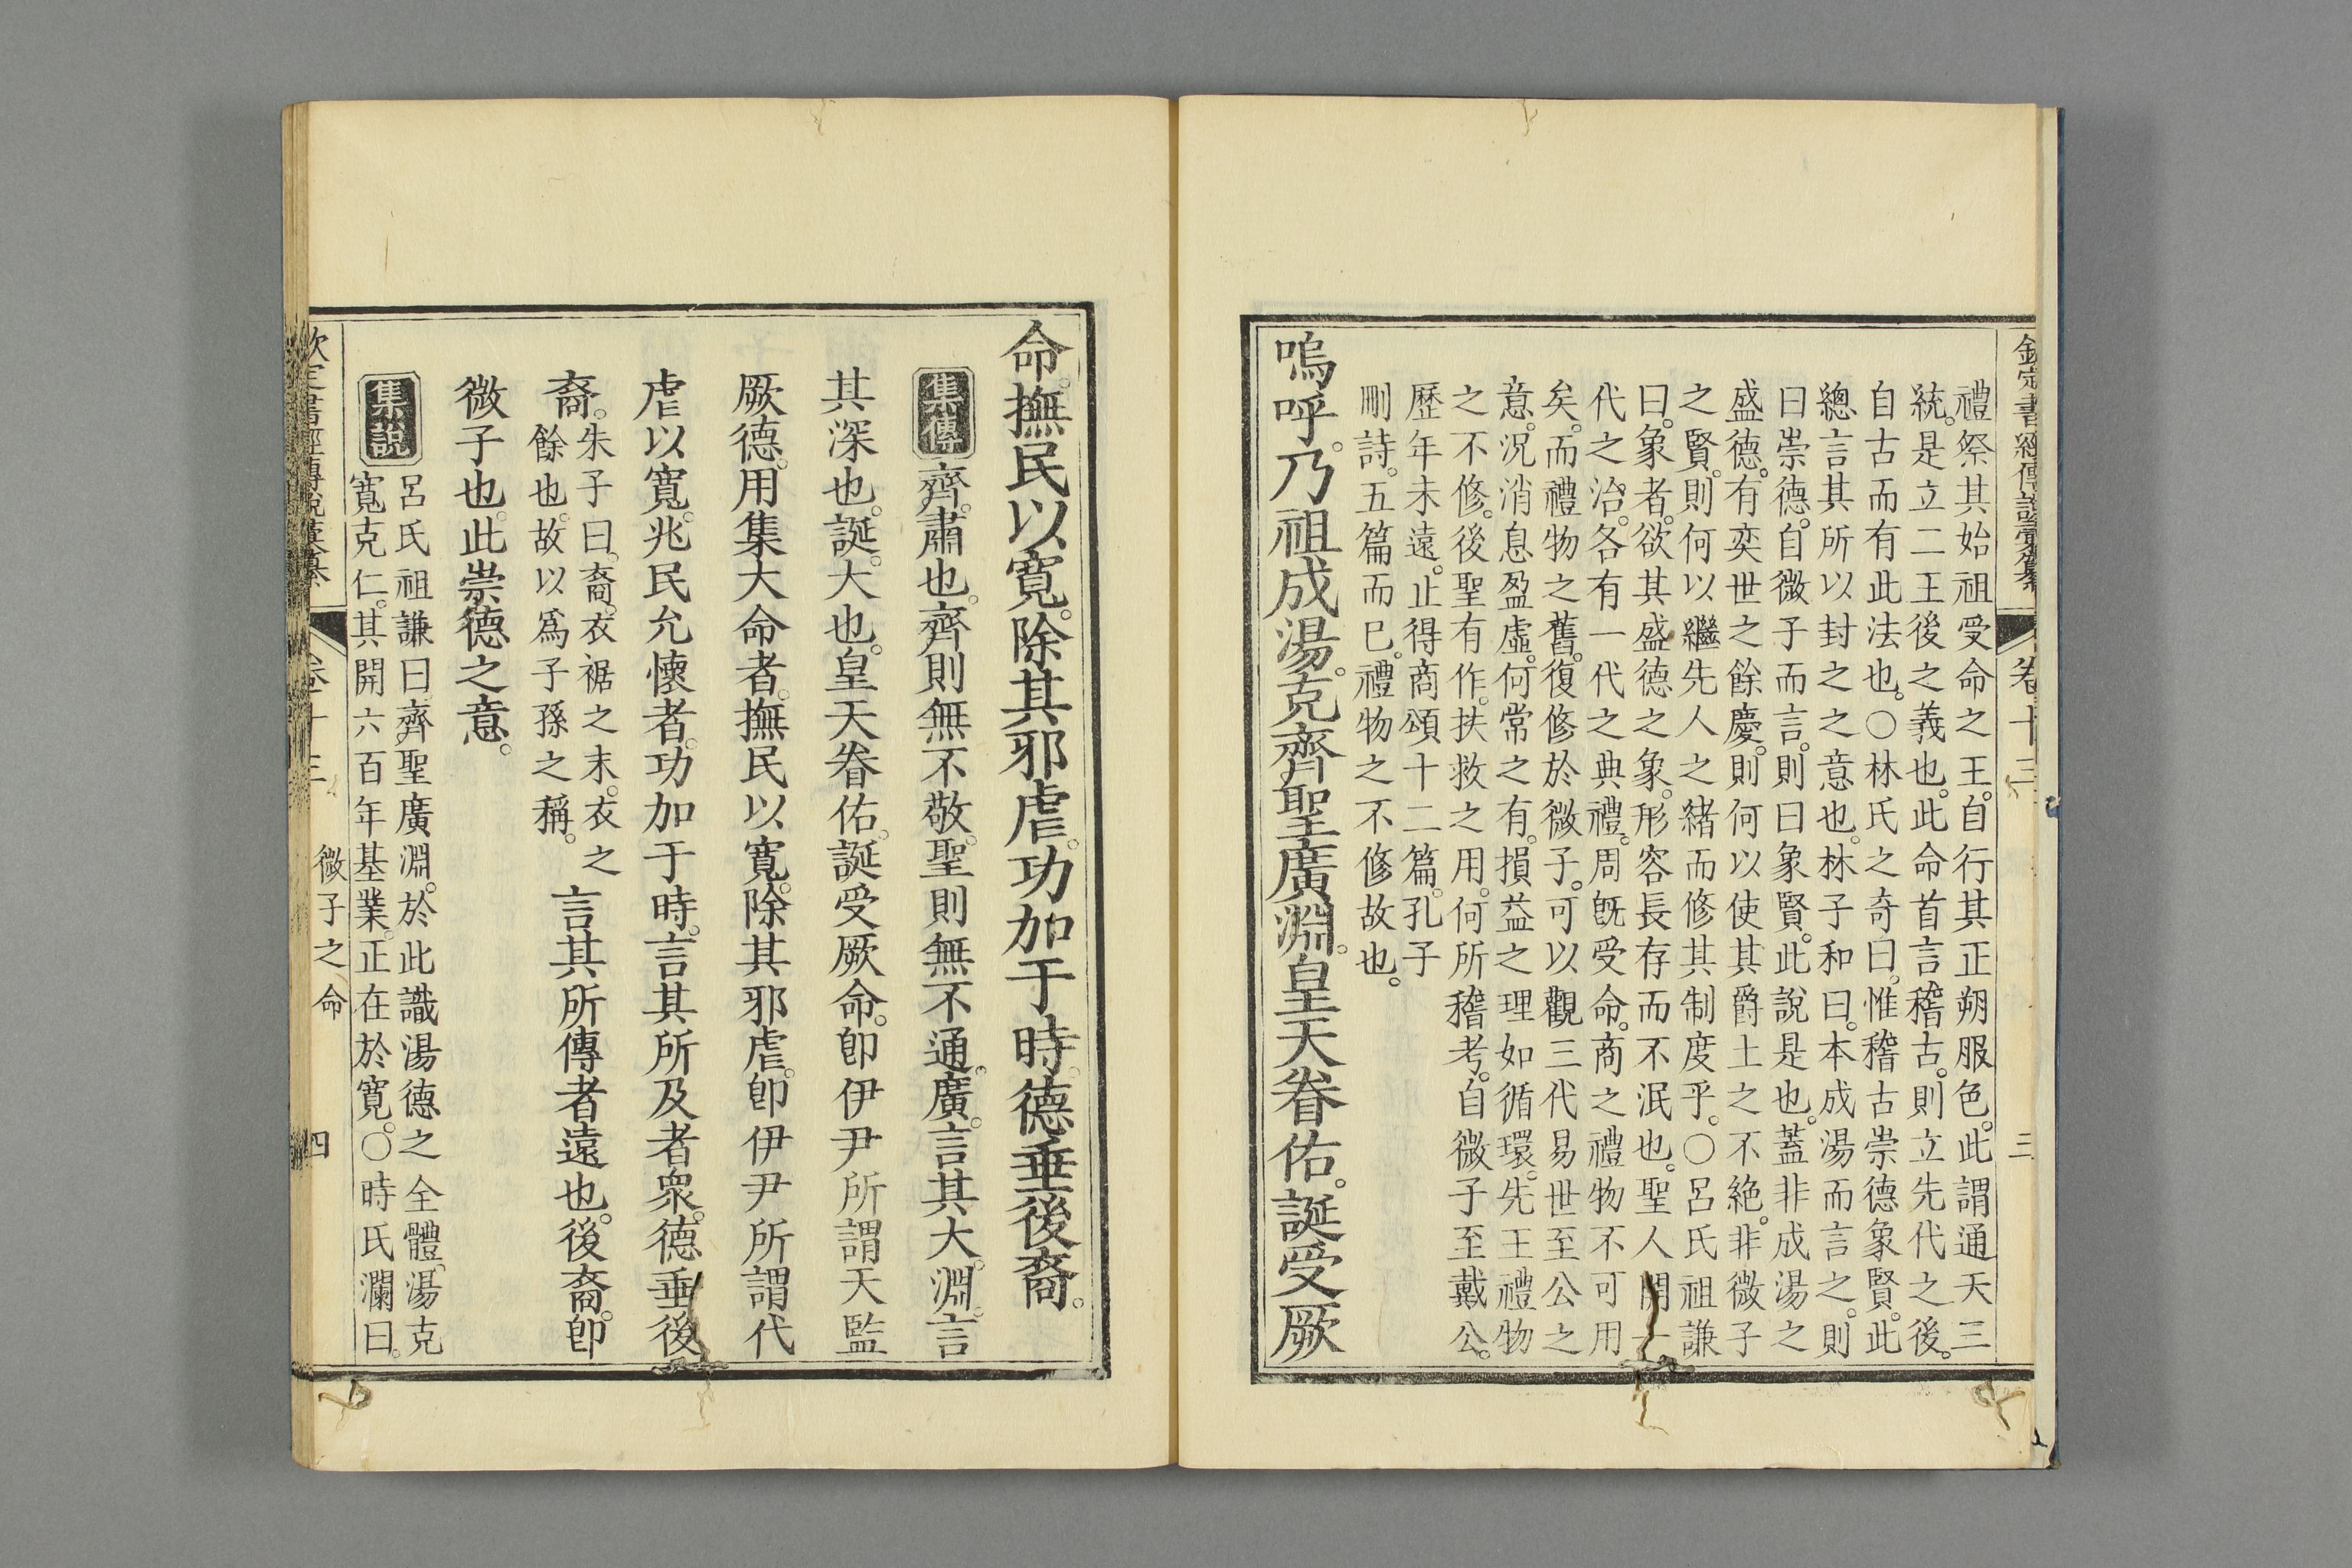 欽定書經傳說彙纂 卷十三 三
禮祭其始祖受命之王。自行其正朔服色。此謂通天三
統。是立二王後之義也。此命首言稽古。則立先代之後。
自古而有此法也。○林氏之奇曰。惟稽古崇德象賢。此
總言其所以封之之意也。林子和曰。本成湯而言之。則
曰崇德。自微子而言。則曰象賢。此說是也。蓋非成湯之
盛德。有奕世之餘慶。則何以使其爵土之不絶。非微子
之賢。則何以繼先人之緒而修其制度乎。○呂氏祖謙
曰。象者。欲其盛德之象。形容長存而不泯也。聖人開一
代之治。各有一代之典禮。周旣受命。商之禮物不可用
矣。而禮物之舊。復修於微子。可以觀三代易世至公之
意。況消息盈虛。何常之有。損益之理如循環。先王禮物
之不修。後聖有作。扶救之用。何所稽考。自微子至戴公。
歷年未遠。止得商頌十二篇。孔子
刪詩。五篇而已。禮物之不修故也。
嗚呼。乃祖成湯。克齊聖廣淵。皇天眷佑。誕受厥
命。撫民以寬。除其邪虐。功加于時。德垂後裔。
集傳 齊。肅也。齊則無不敬。聖則無不通。廣。言其大。淵。言
其深也。誕。大也。皇天眷佑。誕受厥命。卽伊尹所謂天監
厥德。用集大命者。撫民以寬。除其邪虐。卽伊尹所謂代
虐以寬。兆民允懷者。功加于時。言其所及者衆。德垂後
裔。朱子曰。裔。衣裾之末。衣之
餘也。故以爲子孫之稱。言其所傳者遠也。後裔。卽
微子也。此崇德之意。
集說 呂氏祖謙曰。齊聖廣淵。於此識湯德之全體。湯克
寬克仁。其開六百年基業。正在於寬。○時氏瀾曰。
欽定書經傳說彙纂 卷十三 微子之命 四